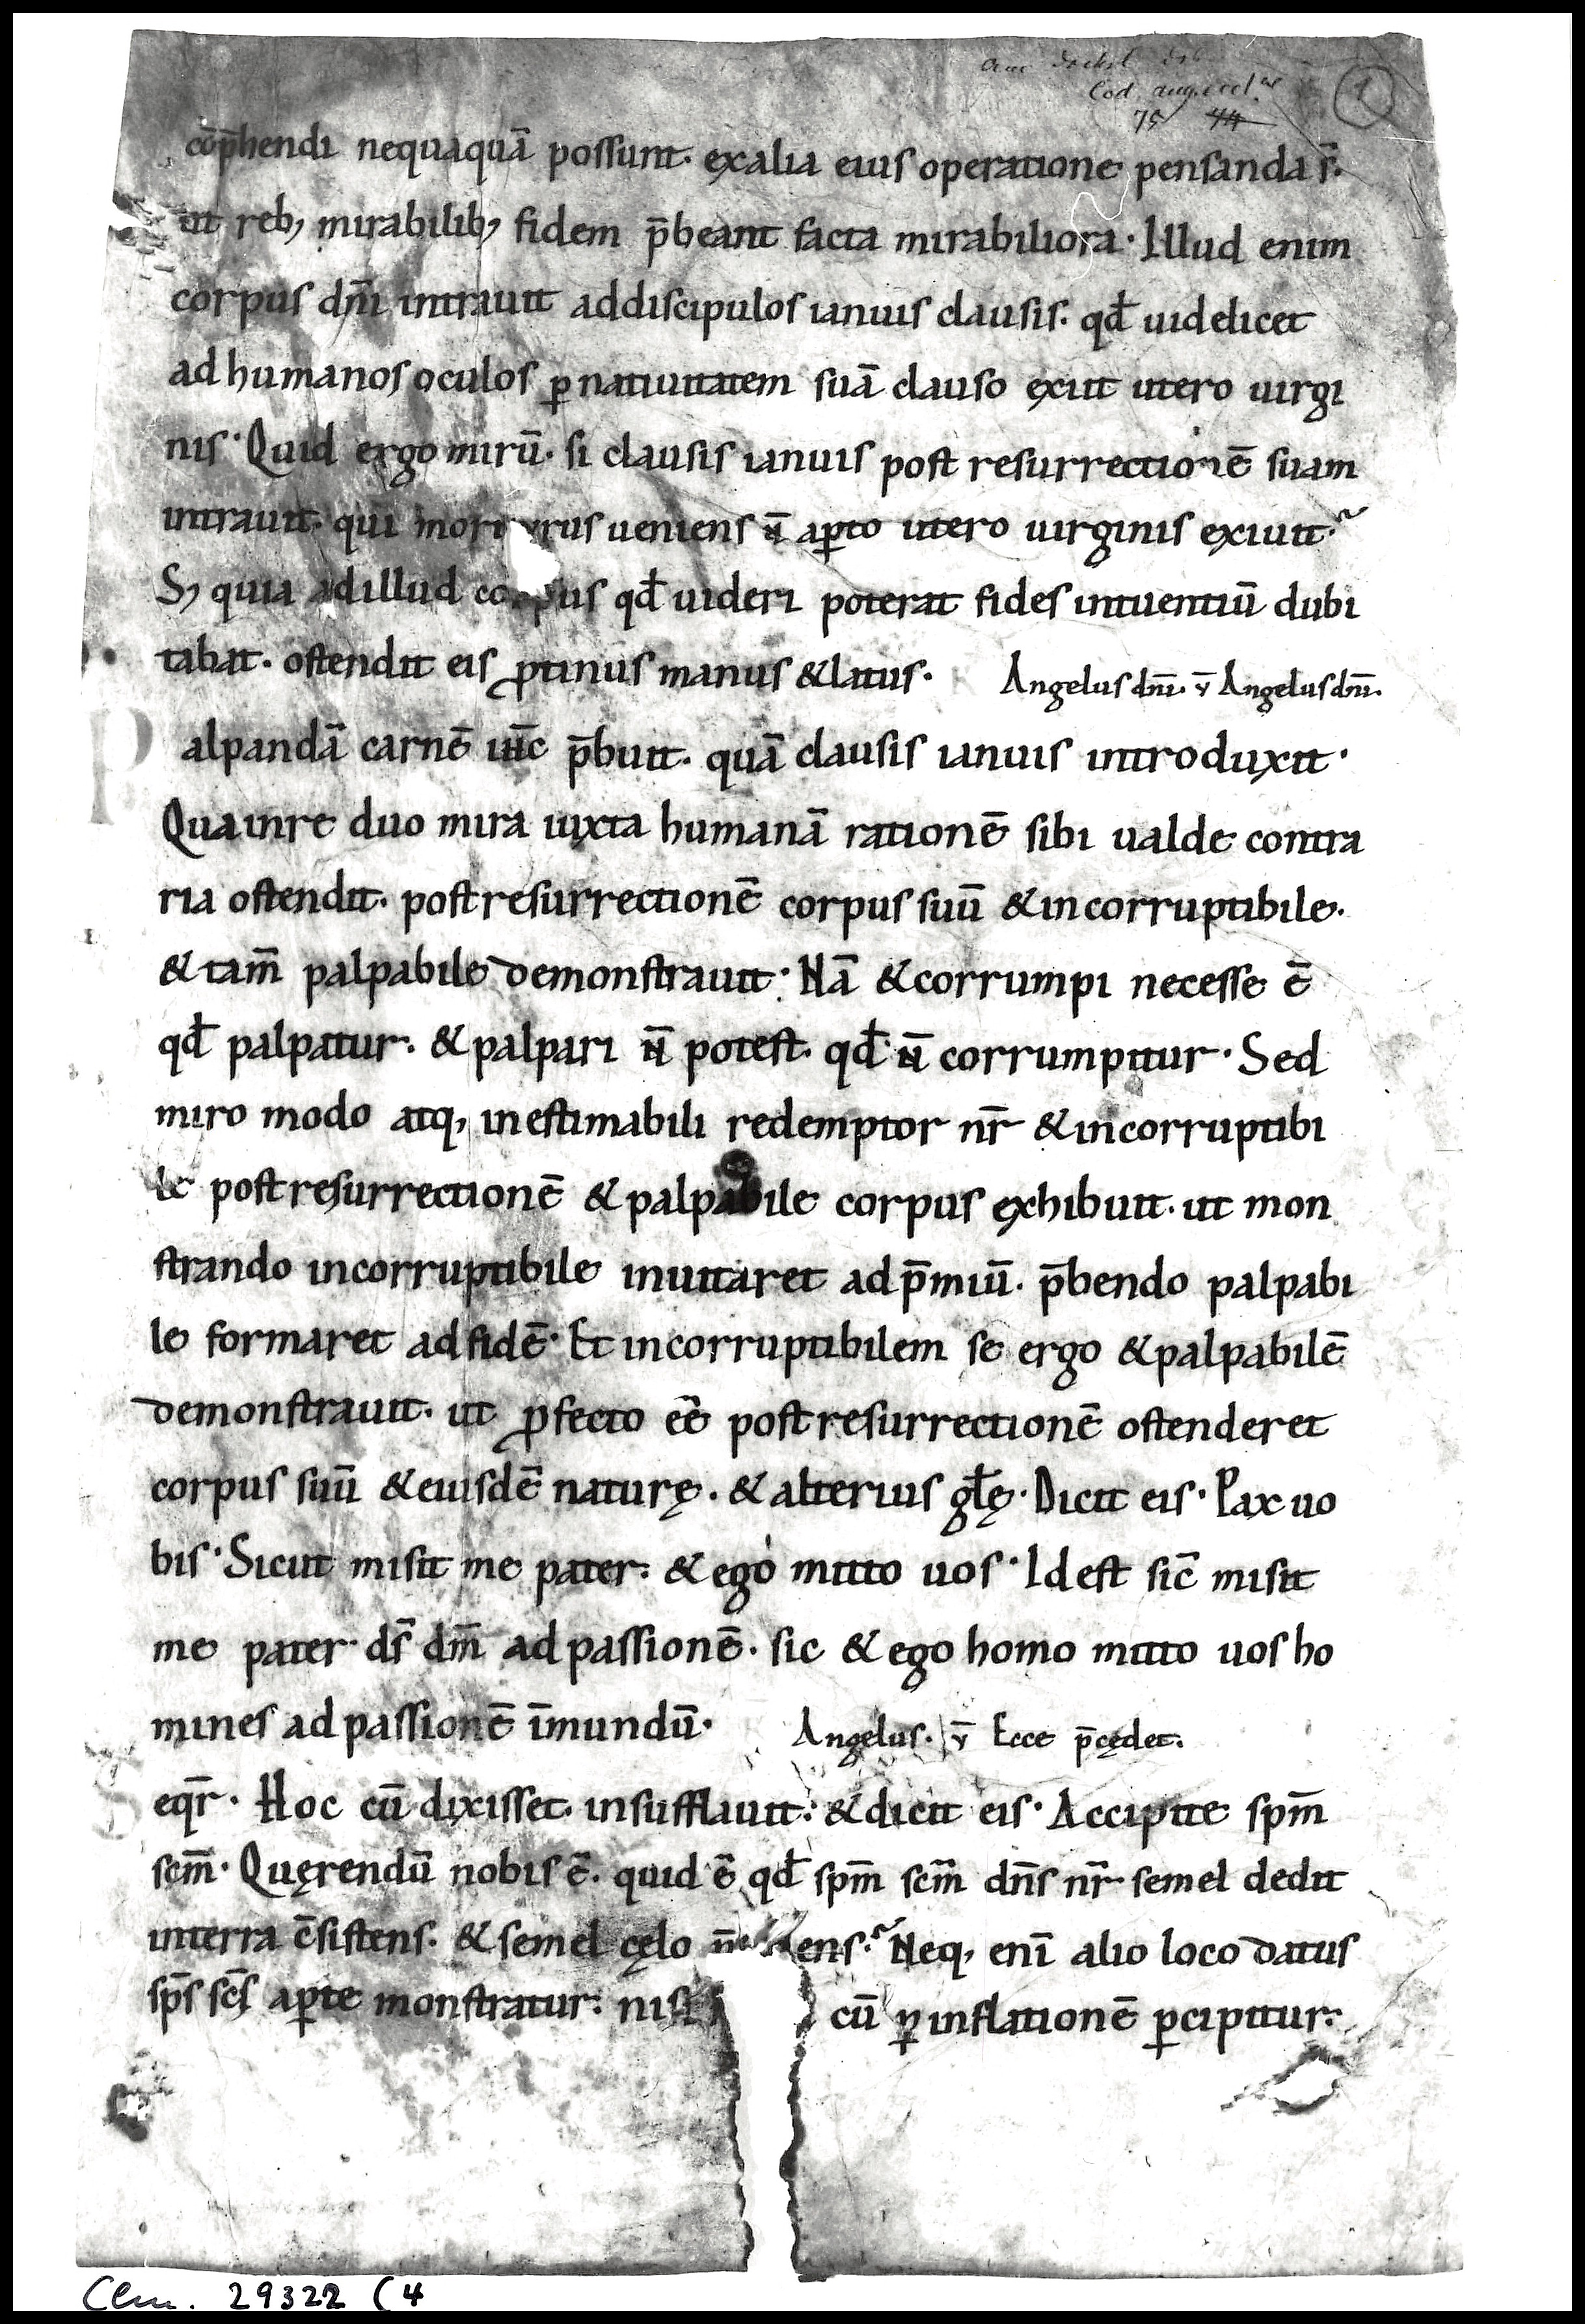 Cod. aug. eccl.
75 44
1
cōp̄hendi nequaquā possunt. ex alia eius operatione pensanda s̄.
ut reb; mirabilib; fidem p̄beant facta mirabiliora. Illud enim
corpus dn̄i intrauit ad discipulos ianuis clausis. qđ uidelicet
ad humanos oculos ꝑ natiuitatem suā clauso exiit utero uirgi
nis. Quid ergo mirū. si clausis ianuis post resurrectionē suam
intrauit. qui mori rus ueniens n̄ aꝑto utero uirginis exiuit?
S; quia ad illud co pus qđ uideri poterat fides intuentiū dubi
tabat. ostendit eis ꝓtinus manus & latus. Angelus dn̄i. v̄ Angelus dn̄i.
P alpandā carnē hic p̄buit. quā clausis ianuis introduxit.
Qua in re duo mira iuxta humanā rationē sibi ualde contra
ria ostendit. post resurrectionē corpus suū & incorruptibile.
& tam̄ palpabile demonstrauit. Nā & corrumpi necesse ē
qđ palpatur. & palpari n̄ potest. qđ n̄ corrumpitur. Sed
miro modo atq; inestimabili redemptor nr̄ & incorruptibi
le post resurrectionē & palpabile corpus exhibuit. ut mon
strando incorruptibile inuitaret ad p̄miū. p̄bendo palpabi
le formaret ad fidē. Et incorruptibilem se ergo & palpabilē
demonstrauit. ut ꝓfecto eē post resurrectionē ostenderet
corpus suū & eiusdē naturę. & alterius głę. Dicit eis. Pax uo
bis. Sicut misit me pater. & ego mitto uos. Id est sic̄ misit
me pater ds̄ dm̄ ad passionē. sic & ego homo mitto uos ho
mines ad passionē īmundū. Angelus. v̄ Ecce p̄cędet.
S eqr̄. Hoc cū dixisset. insufflauit. & dicit eis. Accipite spm̄
scm̄. Quęrendū nobis ē. quid ē qđ spm̄ scm̄ dn̄s nr̄ semel dedit
in terra c̄sistens. & semel cęlo ens? Neq; enī alio loco datus
sps̄ scs̄ aꝑte monstratur. nisi cū ꝑ inflationē ꝑcipitur.
Clm. 29322 (4